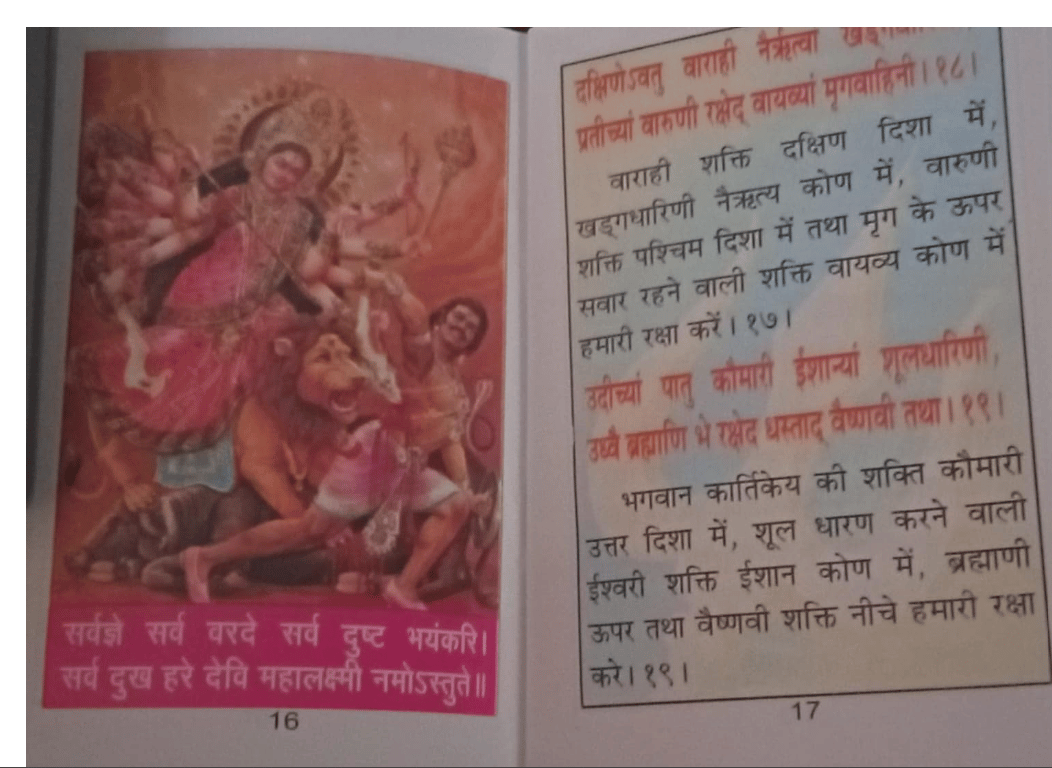 सर्वज्ञे सर्व वरदे सर्व दुष्ट भयंकरि।
सर्व दुख हरे देवि महालक्ष्मी नमोऽस्तुते॥
16
दक्षिणेऽवतु वाराही नैर्ऋत्वा
प्रतीच्यां वारुणी रक्षेद् वायव्यां मृगवाहिनी।१८।
वाराही शक्ति दक्षिण दिशा में,
खड्गधारिणी नैऋत्य कोण में, वारुणी
शक्ति पश्चिम दिशा में तथा मृग के ऊपर
सवार रहने वाली शक्ति वायव्य कोण में
हमारी रक्षा करें।१७।
उदीच्यां पातु कौमारी ईशान्यां शूलधारिणी,
उर्ध्वं ब्रह्माणि भे रक्षेद धस्ताद् वैष्णवी तथा।१९।
भगवान कार्तिकेय की शक्ति कौमारी
उत्तर दिशा में, शूल धारण करने वाली
ईश्वरी शक्ति ईशान कोण में, ब्रह्माणी
ऊपर तथा वैष्णवी शक्ति नीचे हमारी रक्षा
करे।१९।
17